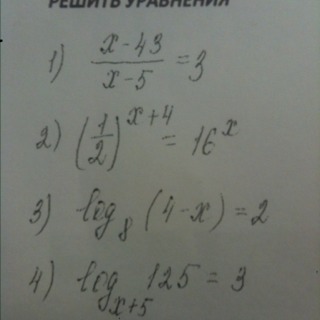 РЕШИТЬ УРАВНЕНИЯ
1) (x-43)/(x-5) = 3
2) (1/2)^(x+4) = 16^x
3) log_8 (4-x) = 2
4) log_(x+5) 125 = 3